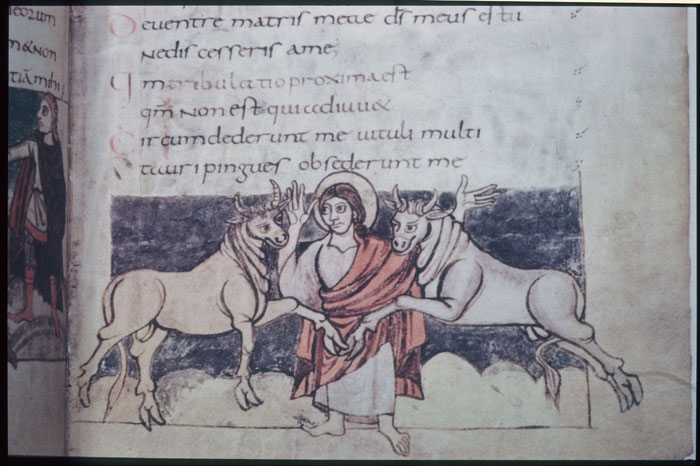 eorum
&non
tiā mihi
De uentre matris meae d̄s meus es tu
Ne discesseris a me
Qm̄ tribulatio proxima est
qm̄ non est qui adiuu&
Circumdederunt me uituli multi
tauri pingues obsederunt me